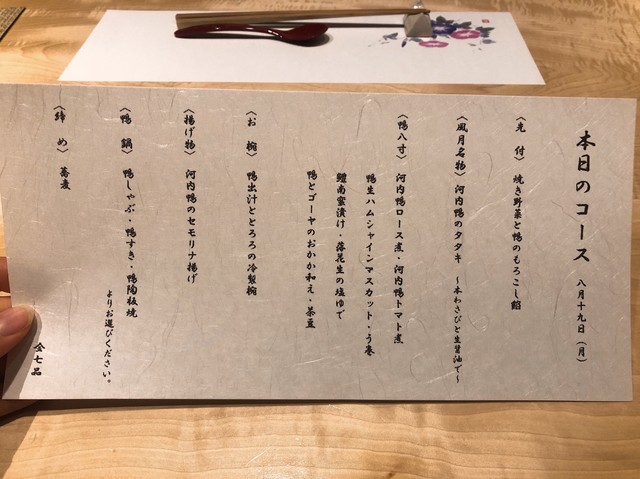 本日のコース 八月十九日(月)
〈先付〉焼き野菜と鴨のもろこし餡
〈風月名物〉河内鴨のタタキ 〜本わさびと生醤油で〜
〈鴨八寸〉河内鴨ロース煮・河内鴨トマト煮
鴨生ハムシャインマスカット・う巻
鱧南蛮漬け・落花生の塩ゆで
鴨とゴーヤのおかか和え・茶豆
〈お椀〉鴨出汁ととろろの冷製椀
〈揚げ物〉河内鴨のセモリナ揚げ
〈鴨鍋〉鴨しゃぶ・鴨すき・鴨陶板焼
よりお選びください。
〈締め〉蕎麦
全七品